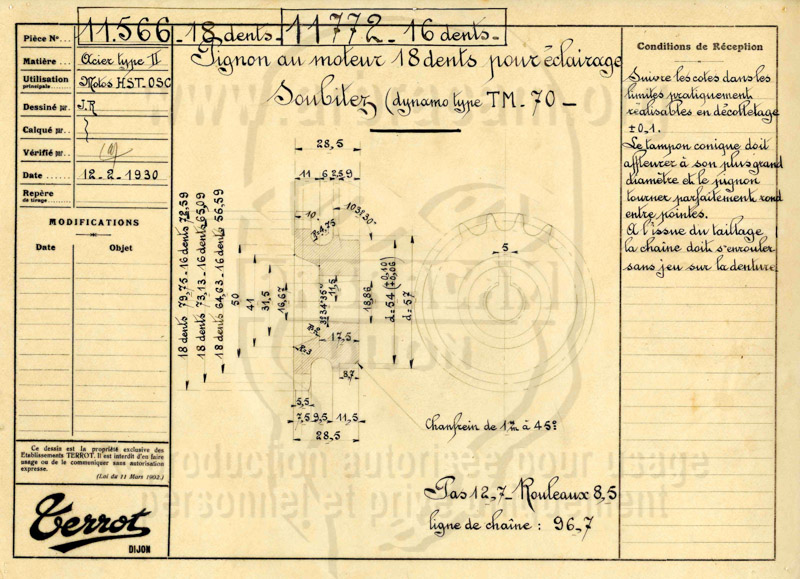 Pièce N° 11.566 - 18 dents - 11772 - 16 dents -
Matière Acier type II
Utilisation principale Motos HST-OSC
Dessiné par J.R
Calqué par
Vérifié par
Date 12-2-1930
Repère de tirage
MODIFICATIONS
Date Objet
Pignon au moteur 18 dents pour éclairage
Soubitez (dynamo type TM-70 -
Conditions de Réception
Suivre les cotes dans les
limites pratiquement
réalisables en décolletage
±0,1.
Le tampon conique doit
affleurer à son plus grand
diamètre et le pignon
tourner parfaitement rond
entre pointes.
A l'issue du taillage
la chaîne doit s'enrouler
sans jeu sur la denture
28,5
11 6,2 5,9
10 103°30'
R=4,75
5
18 dents 79,75 - 16 dents 72,59
18 dents 73,13 - 16 dents 65,09
18 dents 64,63 - 16 dents 56,59
50
41
31,5
16,67
11,5
18,86
d=54 (-0,10 -0,06)
d=57
R=2
R=3
17,5
8,7
5,5
7,5 9,5 11,5
28,5
Chanfrein de 1m/m à 45°
Pas 12,7 - Rouleaux 8,5
ligne de chaîne : 96,7
Ce dessin est la propriété exclusive des
Etablissements TERROT. Il est interdit d'en faire
usage ou de le communiquer sans autorisation
expresse.
(Loi du 11 Mars 1902.)
Terrot
DIJON
reproduction autorisée pour usage
personnel et privé uniquement